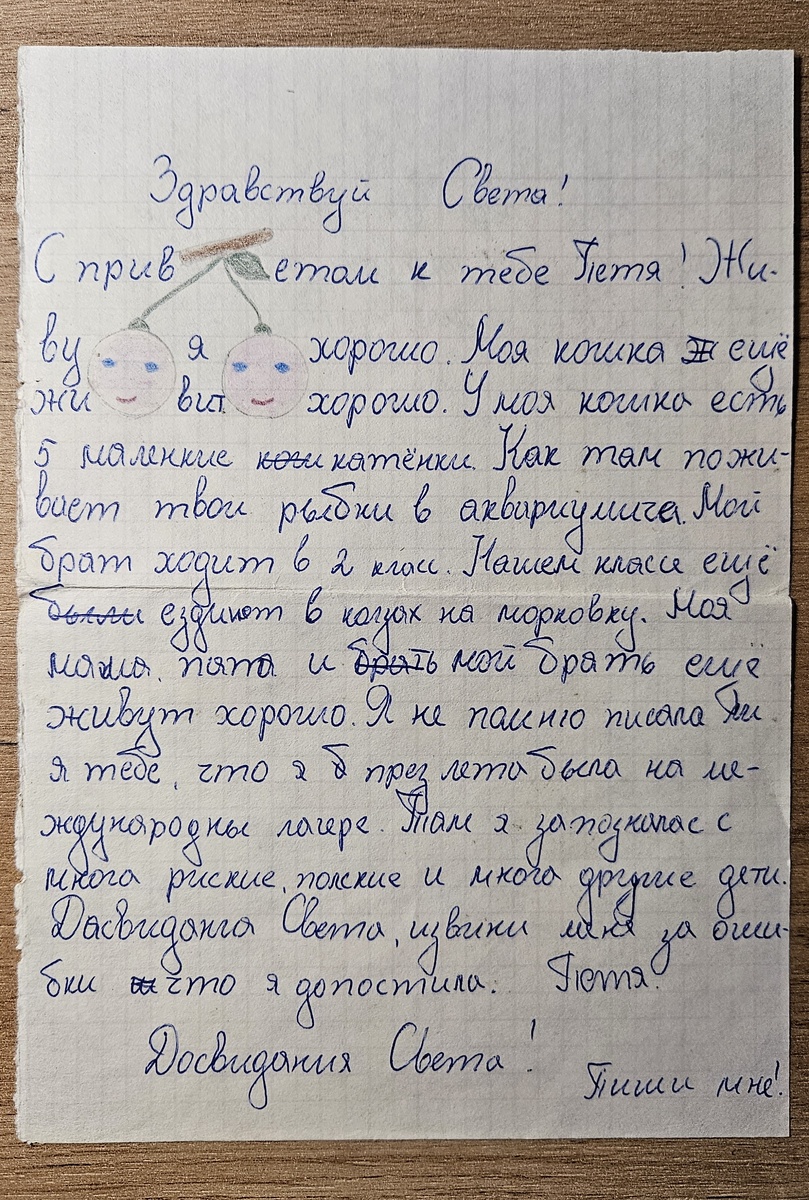 Здравствуй Света!
С приветом к тебе Петя! Жи-
ву я хорошо. Моя кошка ещё
живит хорошо. У моя кошка есть
5 маленкие катёнки. Как там пожи-
вает твои рыбки в аквариумича. Мой
брат ходит в 2 клас. Нашем класе ещё
были ездинют в козах на морковку. Моя
мама, папа и брать мой брать ещё
живут хорошо. Я не помню писала ли
я тебе, что я през лета была на ме-
ждународны лагере. Там я запознапас с
много риские, полские и много другие дети.
Досвиданга Света, извини меня за оши-
бки что я допостила. Петя.
Досвидания Света!
Пиши мне!